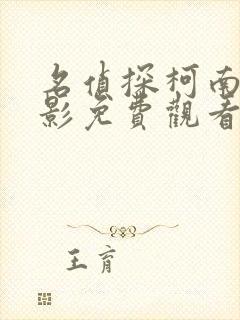 名偵探柯南
影免費觀看
王育